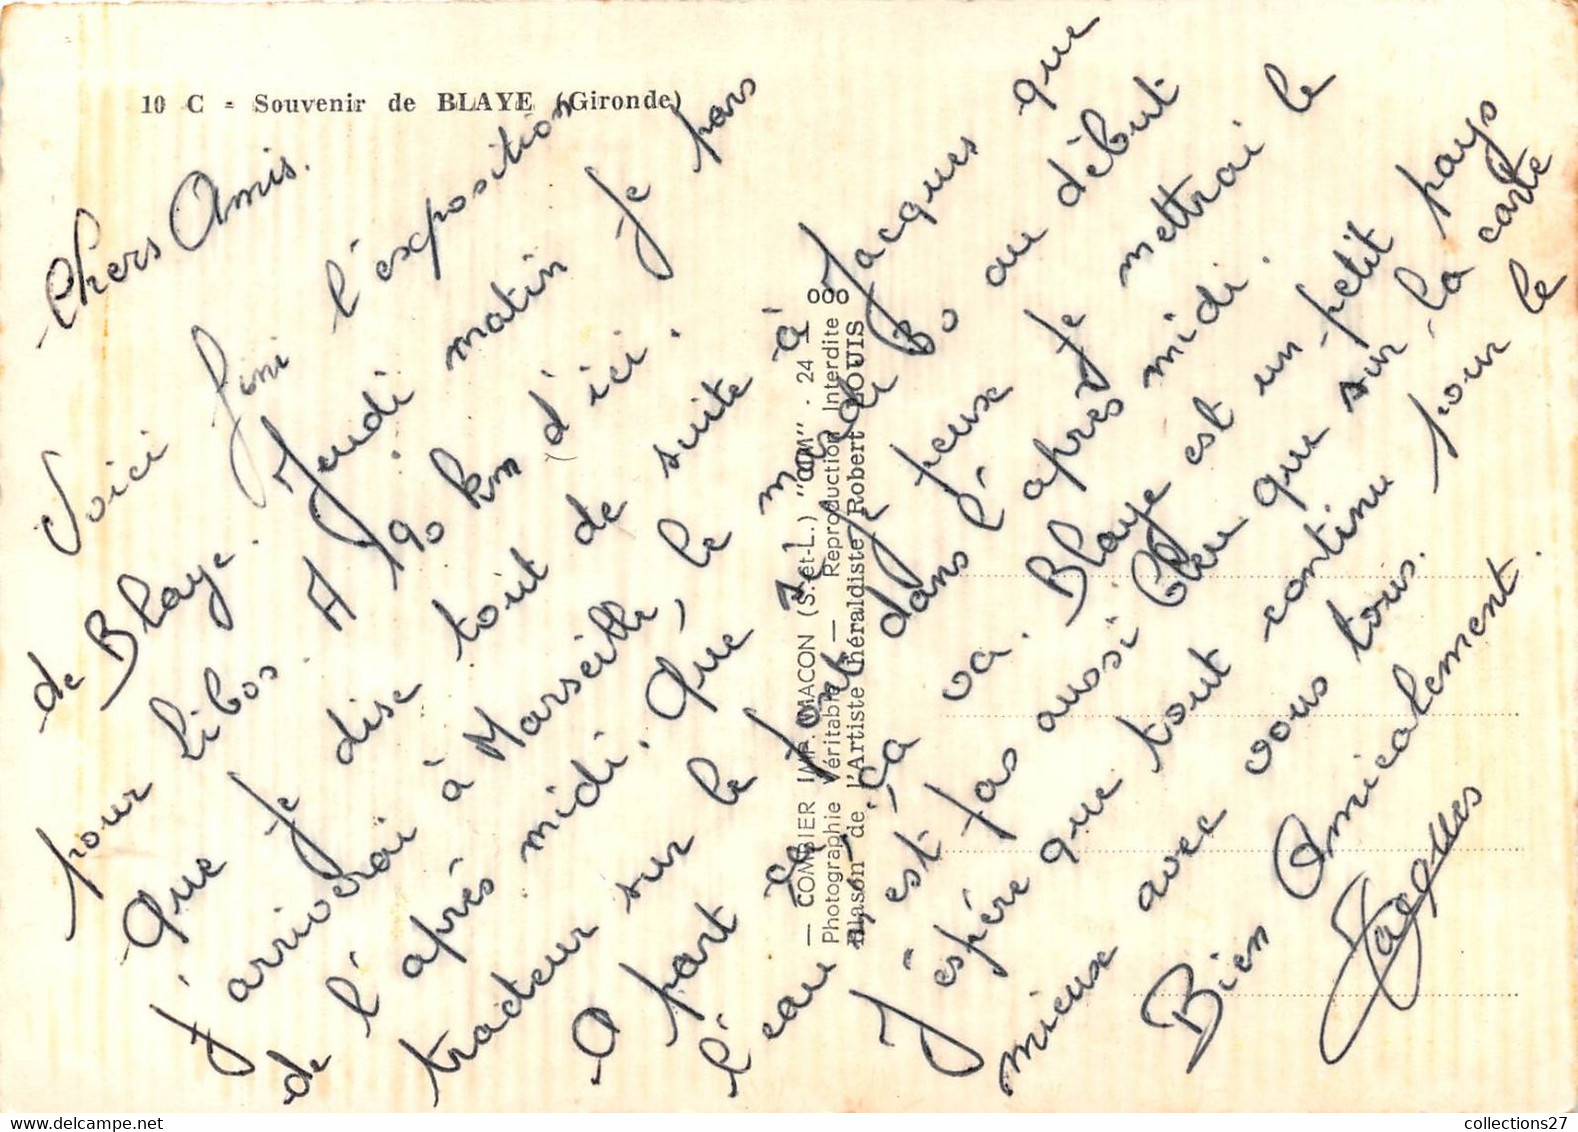 10 C - Souvenir de BLAYE (Gironde)
Chers Amis.
Voici fini l'exposition
de Blaye. Jeudi matin Je pars
pour Libos. A 190 km d'ici.
Que Je dise tout de suite à Jacques que
j'arriverai à Marseille, le mardi 30 au début
de l'après midi. Que Je peux Je mettrai le
tracteur sur le font dans l'après midi.
A part ça, ça va. Blaye est un petit pays
l'eau n'est pas aussi bleu que sur la carte
J'éspére que tout continu pour le
mieux avec vous tous.
Bien Amicalement.
Jacques
— COMBIER IMP. MACON (S.-et-L.) "CIM" - 24 —
Photographie Véritable — Reproduction Interdite ooo
Blason de l'Artiste Héraldiste Robert LOUIS
collections27